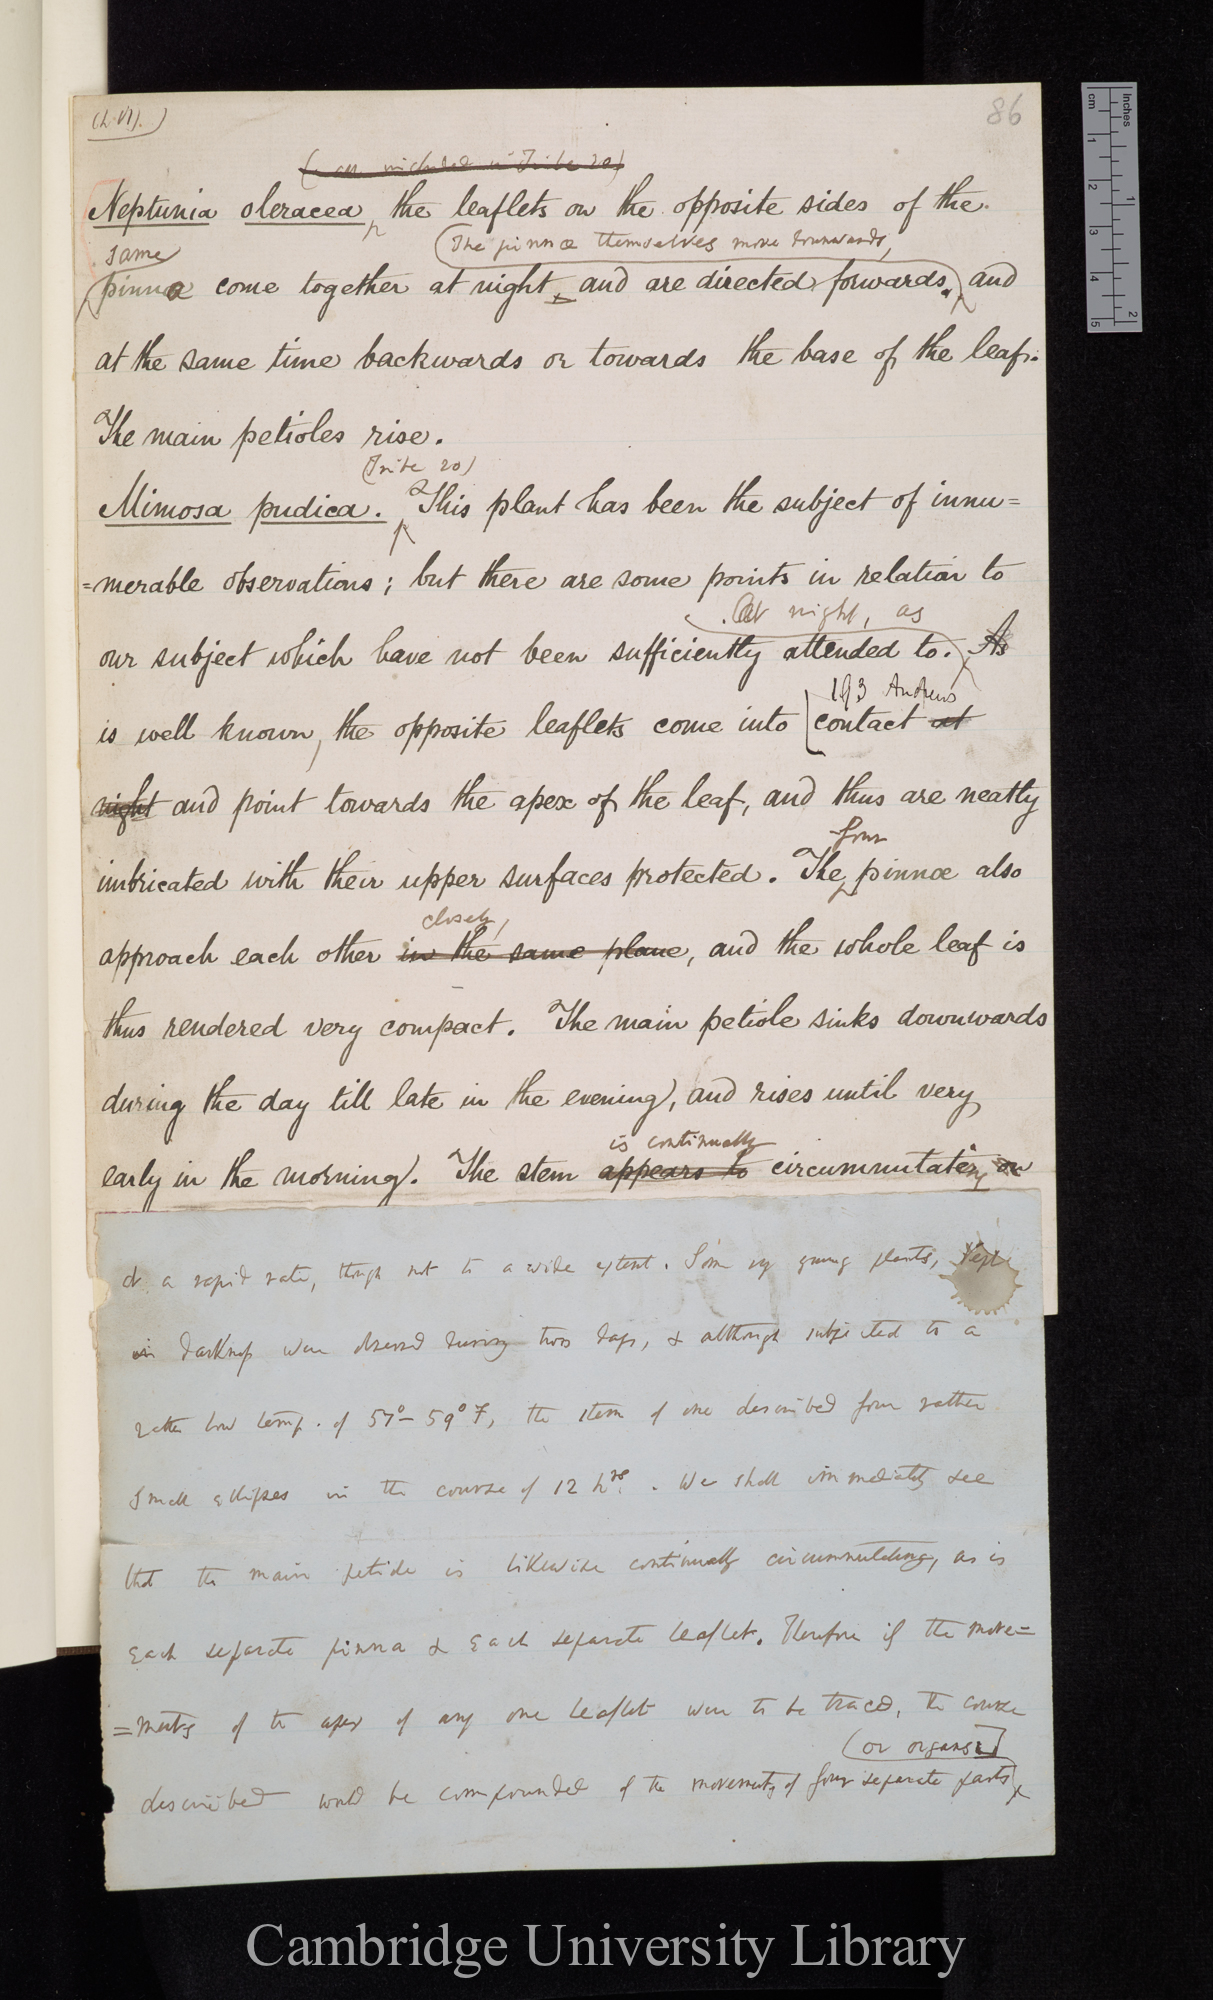 (Ch. VI.)
86
(~~are included in Tribe 20~~)
Neptunia oleracea, the leaflets on the opposite sides of the
same
(The pinnæ themselves move downwards,
pinna come together at night and are directed forwards, and
at the same time backwards or towards the base of the leaf.
The main petioles rise.
(Tribe 20)
Mimosa pudica. This plant has been the subject of innu=
=merable observations; but there are some points in relation to
At night, as
our subject which have not been sufficiently attended to. ~~As~~
193 Andrews
is well known, the opposite leaflets come into [contact ~~at~~
~~night~~ and point towards the apex of the leaf, and thus are neatly
four
imbricated with their upper surfaces protected. The pinnæ also
closely,
approach each other ~~in the same plane~~, and the whole leaf is
thus rendered very compact. The main petiole sinks downwards
during the day till late in the evening, and rises until very
is continually
early in the morning. The stem ~~appears to~~ circumnutating
at a rapid rate, though not to a wide extent. Some vy young plants, kept
in darkness were observed during two days, & although subjected to a
rather low temp. of 57°– 59° F, the stem of one described four rather
small ellipses in the course of 12 hrs. We shall immediately see
that the main petiole is likewise continually circumnutating, as is
each separate pinna & each separate leaflet. Therefore if the move=
=ments of the apex of any one leaflet were to be traced, the course
(or organs)
described would be compounded of the movements of four separate parts
Cambridge University Library
inches
cm
1
2
3
4
5
1
2